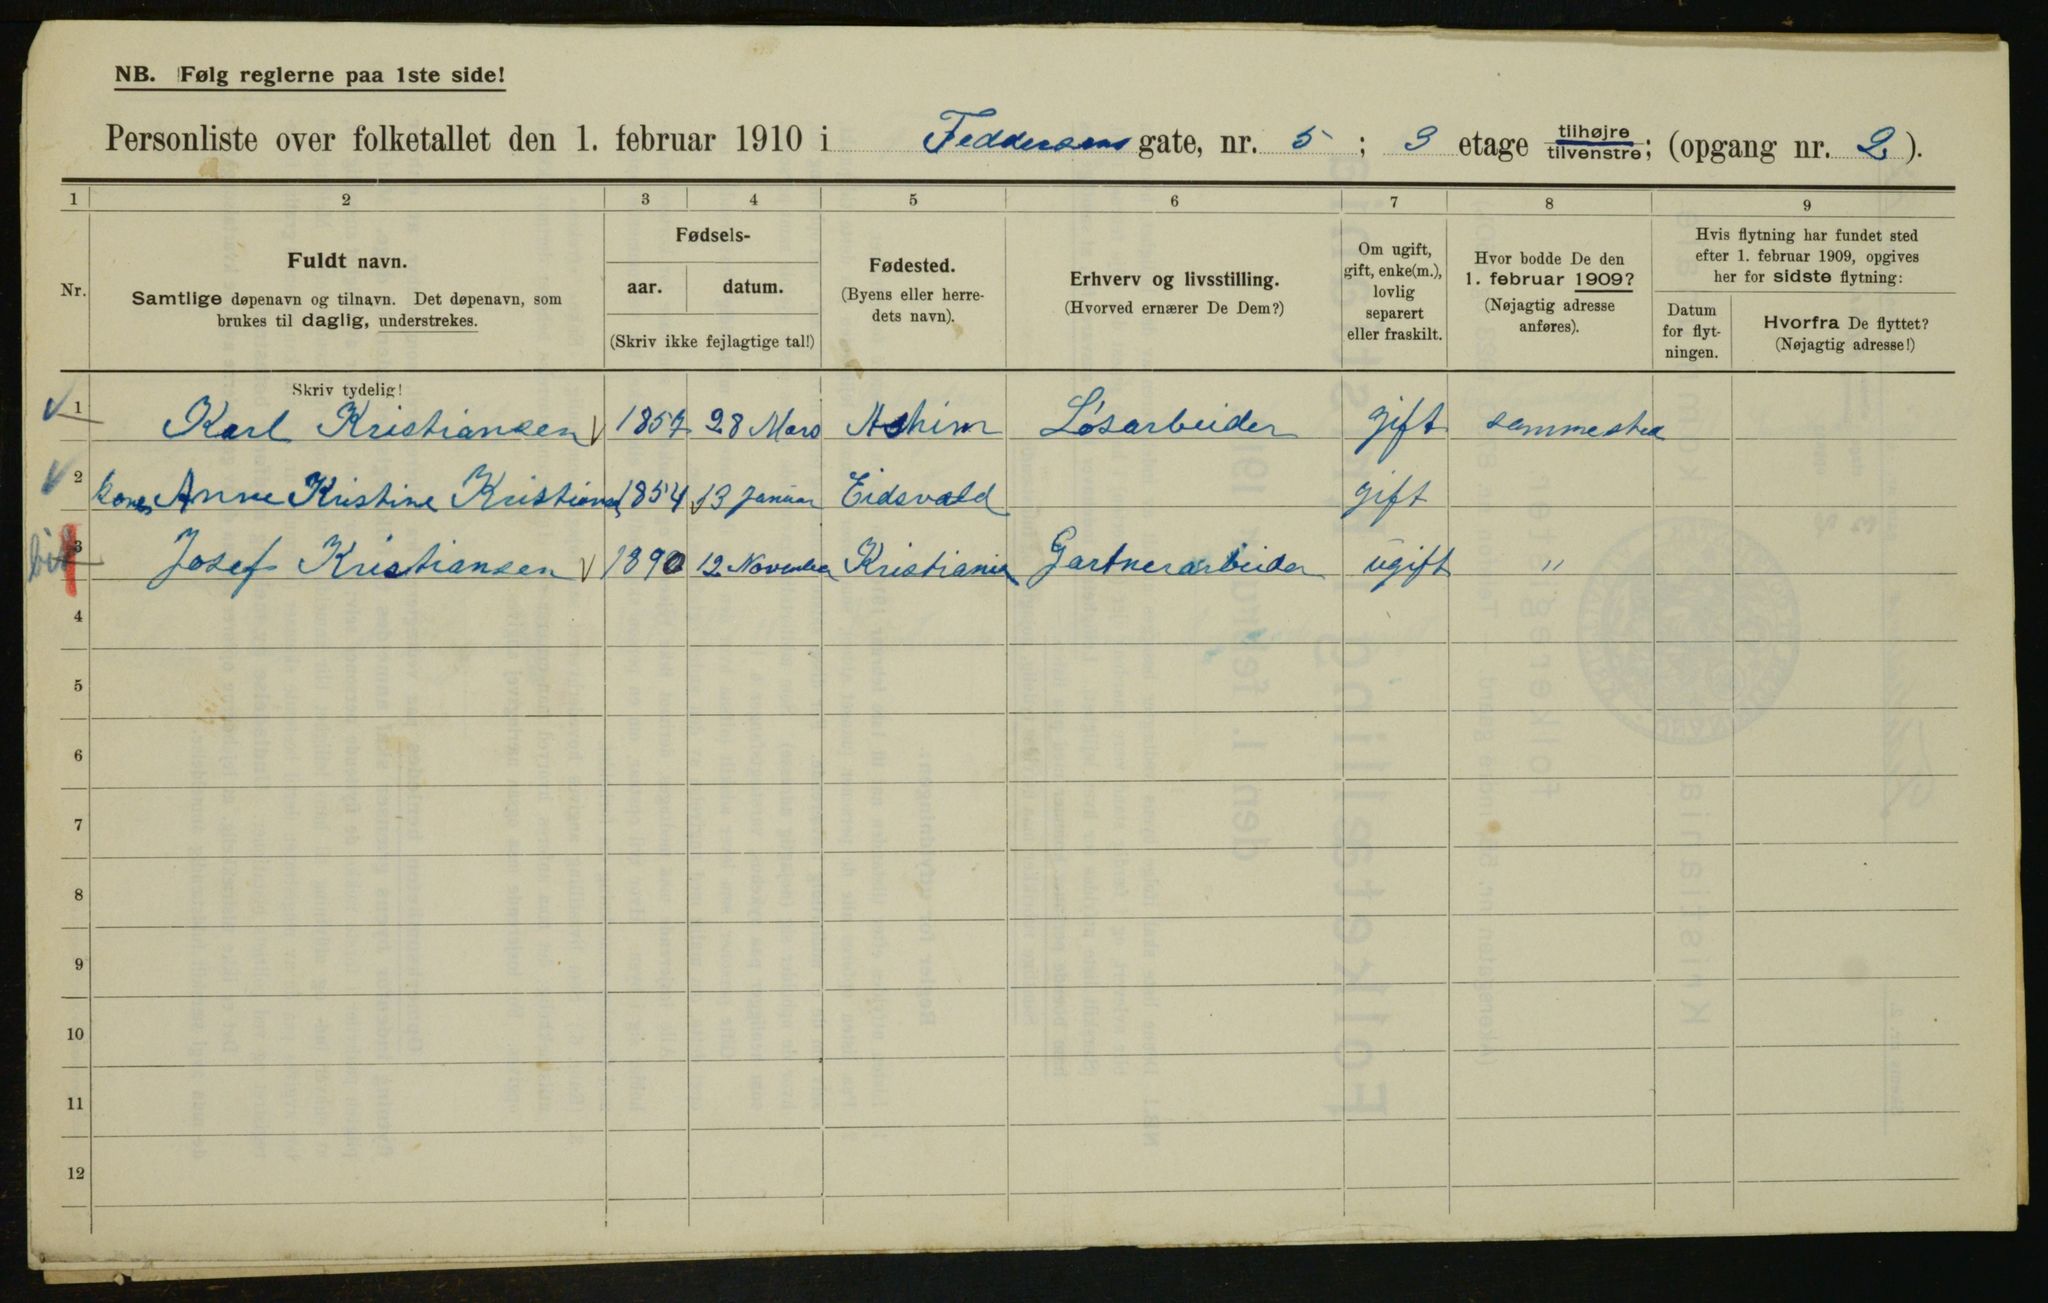 NB. Følg reglerne paa 1ste side!
Personliste over folketallet den 1. februar 1910 i Feddersens gate, nr. 5 ; 3 etage tilhøjre tilvenstre; (opgang nr. 2 ).
1 2 3 4 5 6 7 8 9
Nr.
Fuldt navn.
Samtlige døpenavn og tilnavn. Det døpenavn, som
brukes til daglig, understrekes.
Fødsels-
aar. datum.
(Skriv ikke fejlagtige tal!)
Fødested.
(Byens eller herre-
dets navn).
Erhverv og livsstilling.
(Hvorved ernærer De Dem?)
Om ugift,
gift, enke(m.),
lovlig
separert
eller fraskilt.
Hvor bodde De den
1. februar 1909?
(Nøjagtig adresse
anføres).
Hvis flytning har fundet sted
efter 1. februar 1909, opgives
her for sidste flytning:
Datum
for flyt-
ningen.
Hvorfra De flyttet?
(Nøjagtig adresse!)
Skriv tydelig!
1 Karl Kristiansen 1857 28 Mars Askim Løsarbeider gift sammested
2 kones Anne Kristine Kristiansen 1854 13 Januar Eidsvold gift
3 Josef Kristiansen 1890 12 November Kristiania Gartnerarbeider ugift "
4
5
6
7
8
9
10
11
12